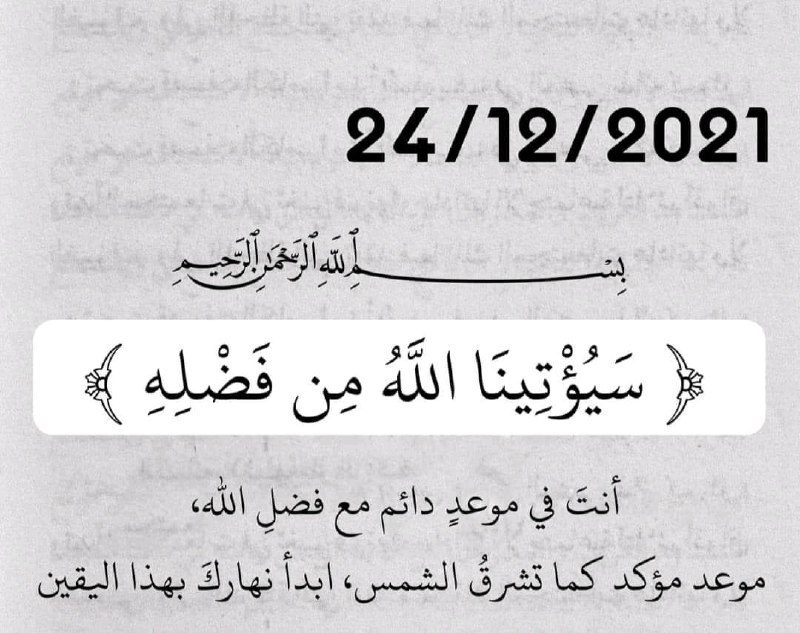 24/12/2021
بِسْمِ اللَّهِ الرَّحْمَٰنِ الرَّحِيمِ
﴿ سَيُؤْتِينَا اللَّهُ مِن فَضْلِهِ ﴾
أنتَ في موعدٍ دائم مع فضلِ الله،
موعد مؤكد كما تشرقُ الشمس، ابدأ نهاركَ بهذا اليقين